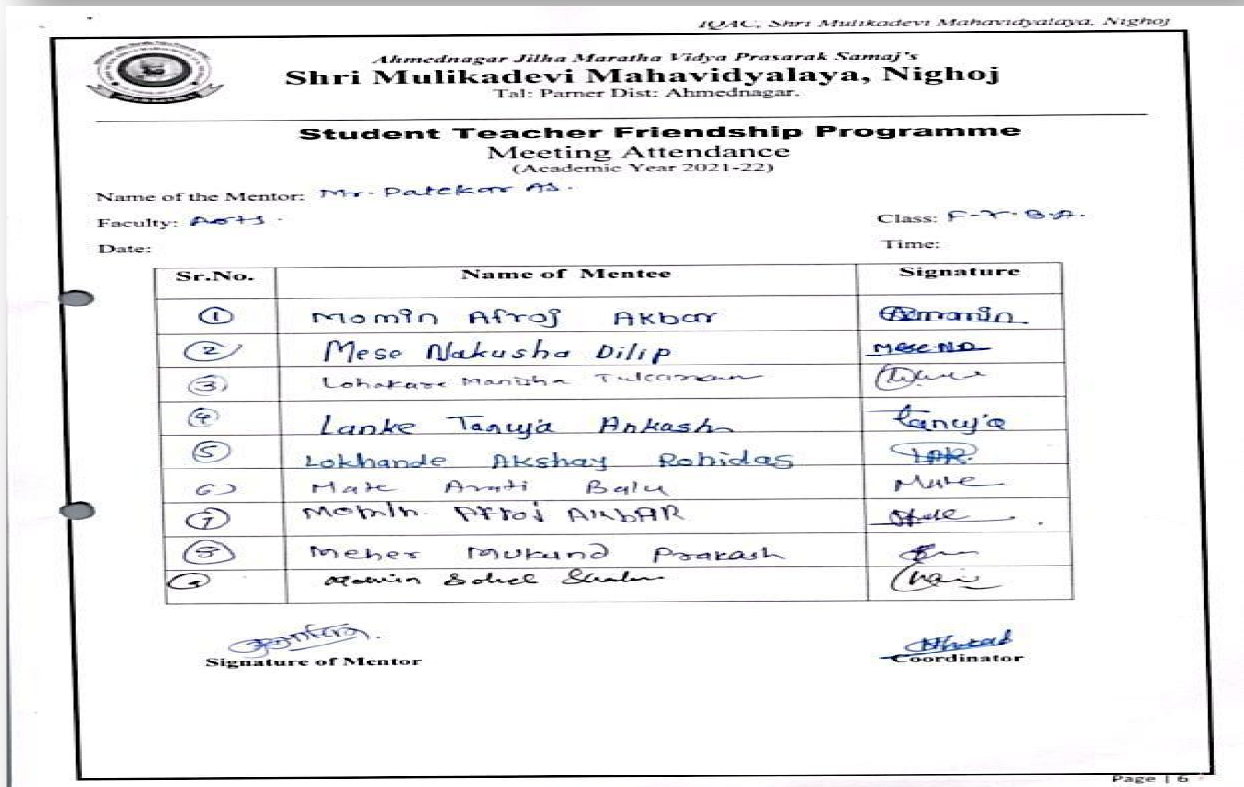 IQAC, Shri Mulikadevi Mahavidyalaya, Nighoj
Ahmednagar Jilha Maratha Vidya Prasarak Samaj's
Shri Mulikadevi Mahavidyalaya, Nighoj
Tal: Parner Dist: Ahmednagar.
Student Teacher Friendship Programme
Meeting Attendance
(Academic Year 2021-22)
Name of the Mentor: Mr. Patekar AS.
Faculty: Arts.
Class: F.Y.B.A.
Date:
Time:
Sr.No. Name of Mentee Signature
1 Momin Afroj Akbar Amomin
2 Mese Nakusha Dilip Mese ND
3 Lohakare Manisha
4 Lanke Tanuja Ankash tanuja
5 Lokhande Akshay Rohidas
6) Mate Arati Balu Mate
7 Momin Afroj AkbAR
8 Meher Mukund Prakash
9 Momin Sohel
Signature of Mentor
Coordinator
Page | 6